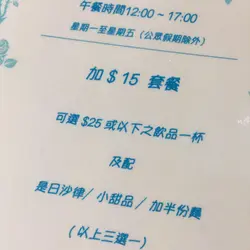 午餐時間12:00 ~ 17:00
星期一至星期五（公眾假期除外）
加 $ 15 套餐
可選 $25 或以下之飲品一杯
及配
是日沙律/ 小甜品 / 加半份麵
( 以上三選一 )